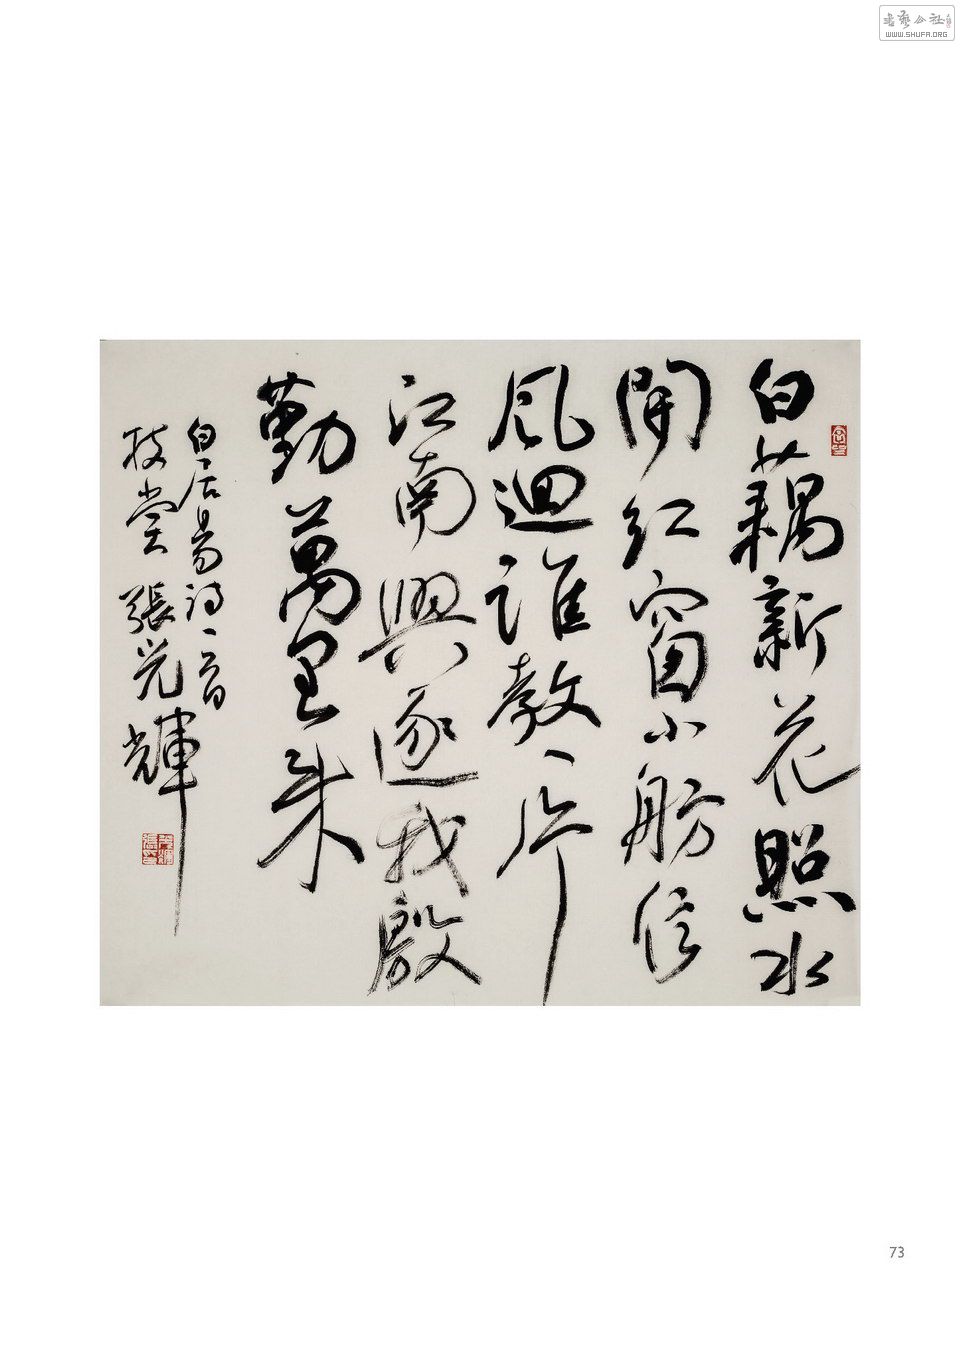 書藝公社
WWW.SHUFA.ORG
白藕新花照水
開紅窗小舫信
風迴誰教一片
江南興逐我殷
勤萬里來
白居易詩一首
張光輝
73